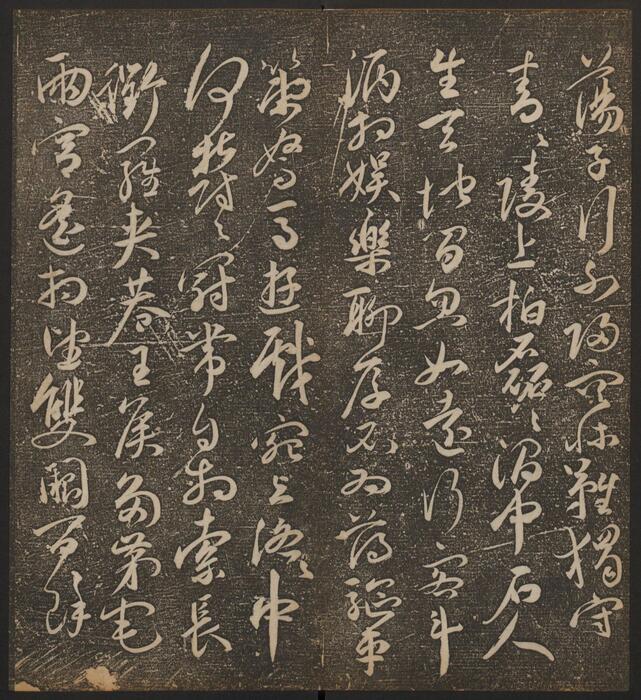 蕩子行不歸空牀難獨守
青〻陵上柏磊〻澗中石人
生天地間忽如遠行客斗
酒相娛樂聊厚不為薄驅車
策駑馬遊戲宛與洛〻中
何鬱〻冠帶自相索長
衢羅夾巷王侯多第宅
兩宮遙相望雙闕百餘